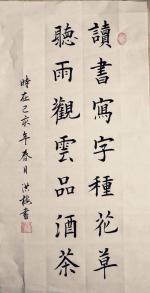 讀書寫字種花草
聽雨觀雲品酒茶
時在己亥年春月洪梅書